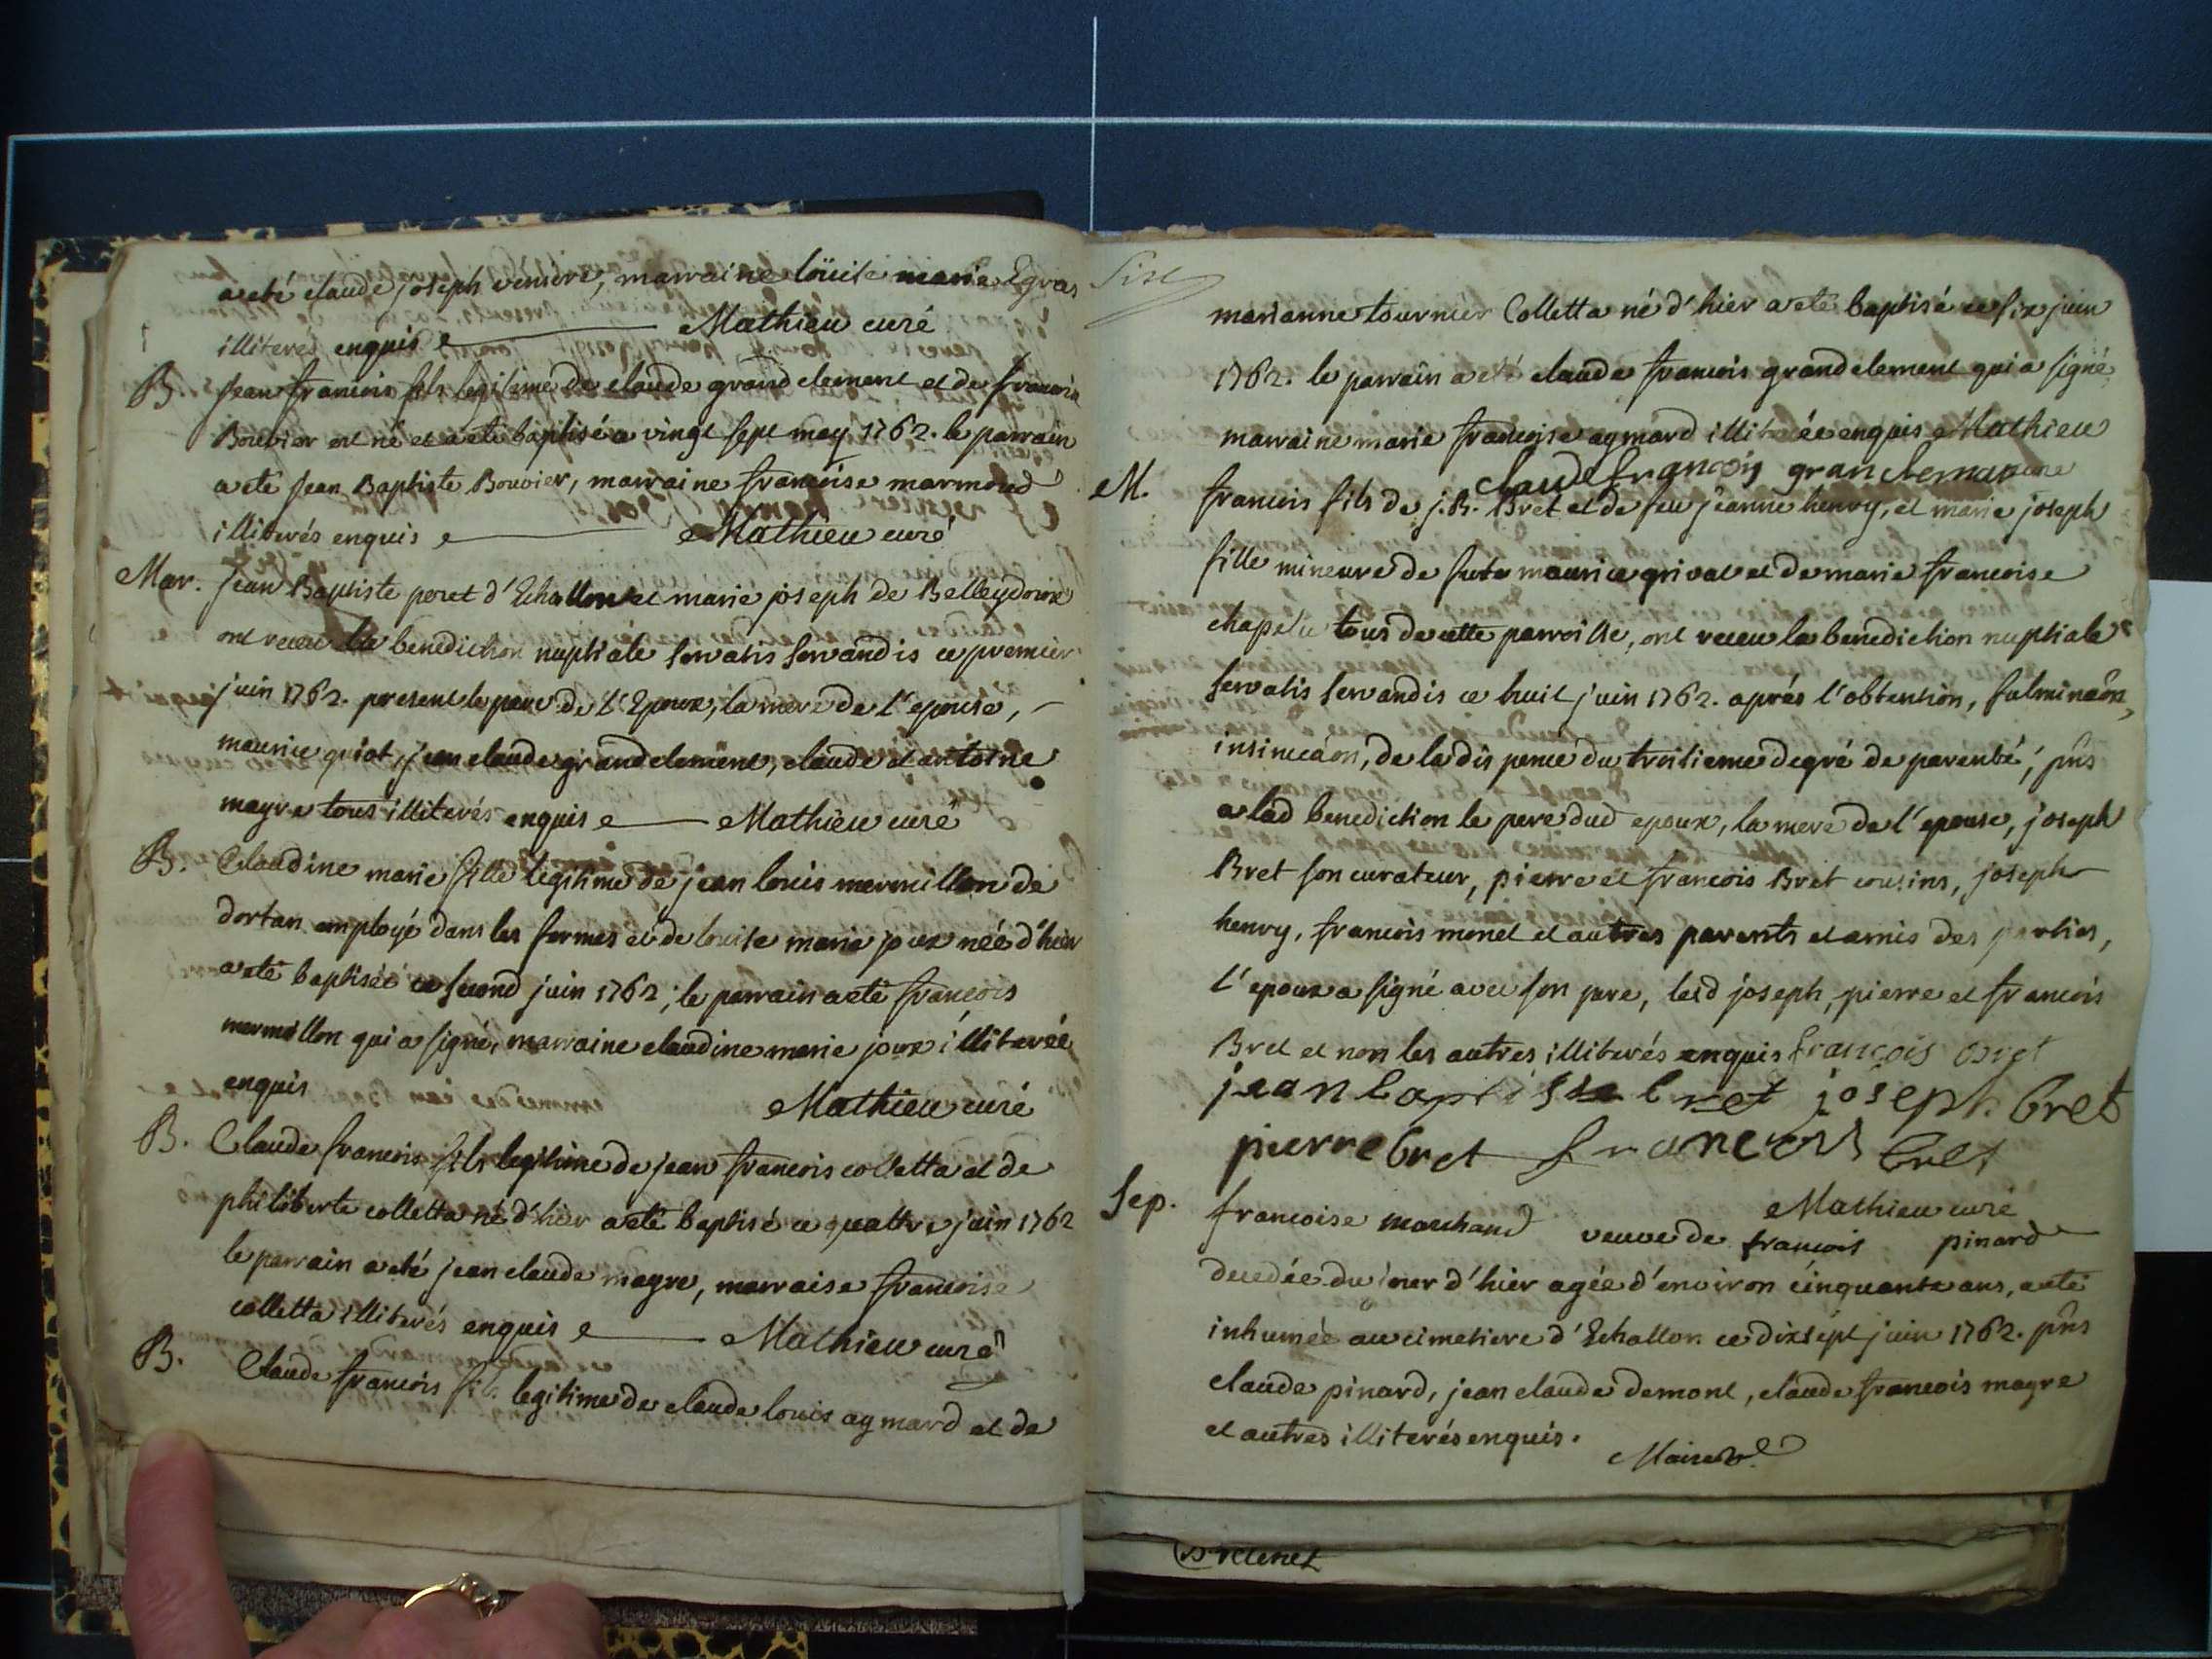 a eté claude joseph vensere, marraine loüise marie Egras
illiterés enquis Mathieu curé
B. Jean francois fils legitime de claude grandclement et de francoise
Bouvier est né et a eté baptisé ce vingt sept may 1762. le parrain
a eté Jean Baptiste Bouvier, marraine francoise marmoud
illiterés enquis Mathieu curé
Mar. Jean Baptiste poret d'Echallon et marie joseph de Belleydoux
ont receu la benediction nuptiale servatis servandis ce premier
juin 1762. present le pere de l'Epoux, la mere de l'epouse,
maurice jean claude grandclement, claude et antoine
magre tous illiterés enquis Mathieu curé
B. Claudine marie fille legitime de jean louis mermillon de
dortan employé dans les fermes et de louise marie joux née d'hier
a eté baptisée ce second juin 1762; le parrain a eté françois
mermillon qui a signé, marraine claudine marie joux illiterée
enquis Mathieu curé
B. Claude francois fils legitime de jean francois colletta et de
philiberte colletta né d'hier a eté baptisé ce quattre juin 1762
le parrain a eté jean claude magre, marraise francoise
colletta illiterés enquis Mathieu curé
B. Claude francois fils legitime de claude louis aymard et de
marianne tournier Colletta né d'hier a eté baptisé ce six juin
1762. le parrain a eté claude francois grandclement qui a signé
marraine marie francoise aymard illiterée enquis Mathieu
claude francois grancleman curé
M. francois fils de j.B. Bret et de feu jeanne henry, et marie joseph
fille mineure de maurice grivat et de marie francoise
chapelu tous de cette parroisse, ont receu la benediction nuptiale
servatis servandis ce huit juin 1762. aprés l'obtention, fulminaõn,
insinuaõn, de la dispence du troisieme degré de parenté, pñs
a lad benediction le pere dud epoux, la mere de l'epouse, joseph
Bret son curateur, pierre et francois Bret cousins, joseph
henry, francois monet et autres parents et amis des parties,
l'epoux a signé avec son pere, lesd joseph, pierre et francois
Bret et non les autres illiterés enquis françois bret
jean baptiste bret joseph bret
pierre bret francois bret
Mathieu curé
Sep. francoise marchand veuve de francois pinard
decedée du jour d'hier agée d'environ cinquante ans, a eté
inhumée au cimetiere d'Echallon ce dixsept juin 1762. pñs
claude pinard, jean claude demont, claude francois magre
et autres illiterés enquis.